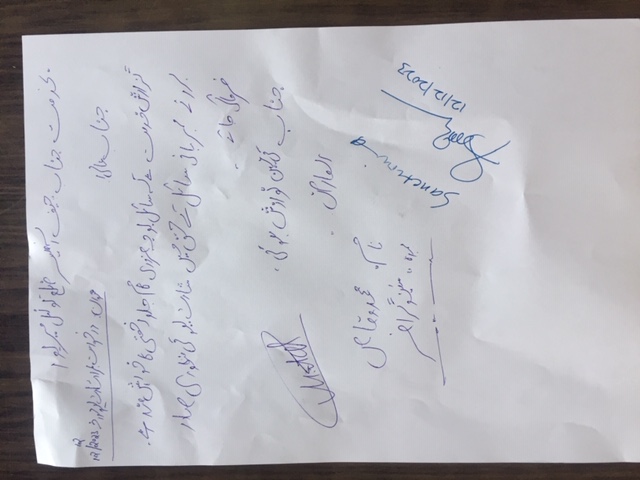 بخدمت جناب چیف آفیسر ضلع کونسل میرپور
عنوان: درخواست برائے شارٹ لیو مورخہ 12/12/2023
جناب عالی!
گزارش خدمت ہے کہ سائل بوجہ ضروری کام جلد رخصتی کا خواہش مند ہے۔
برائے مہربانی سائل کے حق میں شارٹ لیو کی منظوری صادر
فرمائی جائے۔
جناب کی عین نوازش ہو گی۔
العارض
نام: محمد وقاص
عہدہ: سٹینوگرافر
Sanctioned
12/12/2023